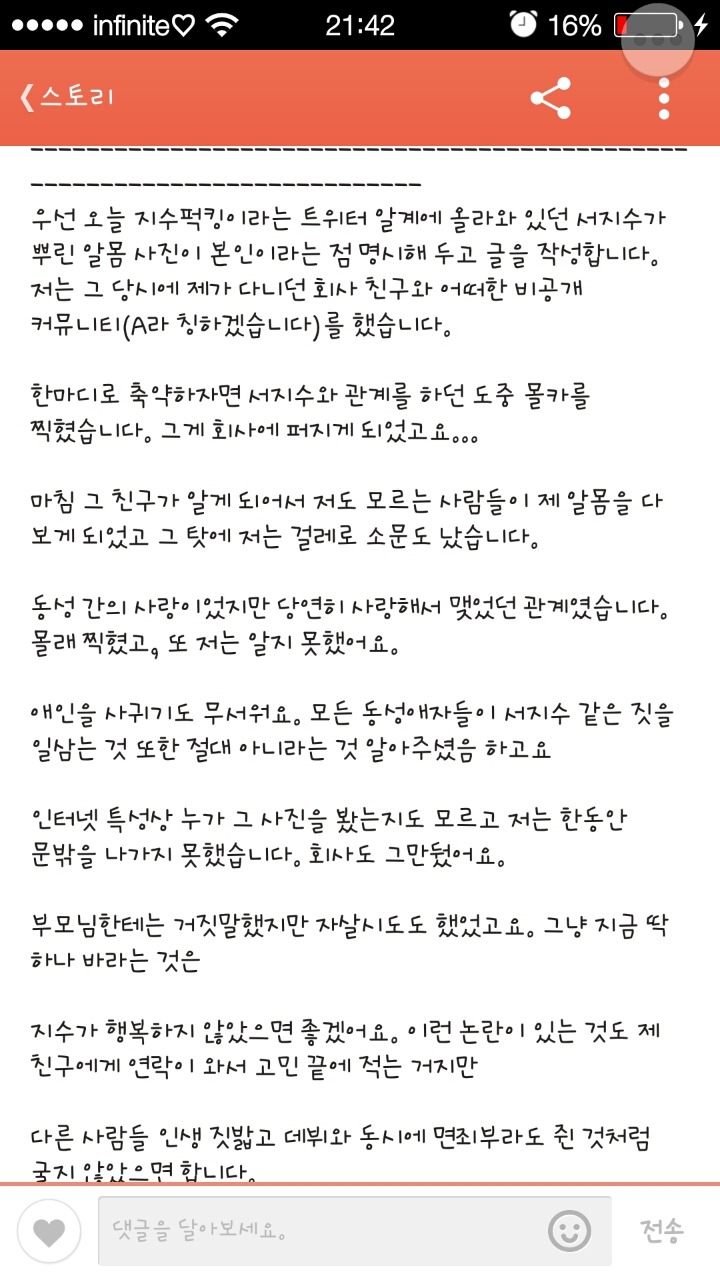 infinite♡ 21:42 16%
스토리
우선 오늘 지수퍽킹이라는 트위터 알계에 올라와 있던 서지수가
뿌린 알몸 사진이 본인이라는 점 명시해 두고 글을 작성합니다.
저는 그 당시에 제가 다니던 회사 친구와 어떠한 비공개
커뮤니티(A라 칭하겠습니다)를 했습니다.
한마디로 축약하자면 서지수와 관계를 하던 도중 몰카를
찍혔습니다. 그게 회사에 퍼지게 되었고요...
마침 그 친구가 알게 되어서 저도 모르는 사람들이 제 알몸을 다
보게 되었고 그 탓에 저는 걸레로 소문도 났습니다.
동성 간의 사랑이었지만 당연히 사랑해서 맺었던 관계였습니다.
몰래 찍혔고, 또 저는 알지 못했어요.
애인을 사귀기도 무서워요. 모든 동성애자들이 서지수 같은 짓을
일삼는 것 또한 절대 아니라는 것 알아주셨음 하고요
인터넷 특성상 누가 그 사진을 봤는지도 모르고 저는 한동안
문밖을 나가지 못했습니다. 회사도 그만뒀어요.
부모님한테는 거짓말했지만 자살시도도 했었고요. 그냥 지금 딱
하나 바라는 것은
지수가 행복하지 않았으면 좋겠어요. 이런 논란이 있는 것도 제
친구에게 연락이 와서 고민 끝에 적는 거지만
다른 사람들 인생 짓밟고 데뷔와 동시에 면죄부라도 쥔 것처럼
굴지 않았으면 합니다.
댓글을 달아보세요. 전송